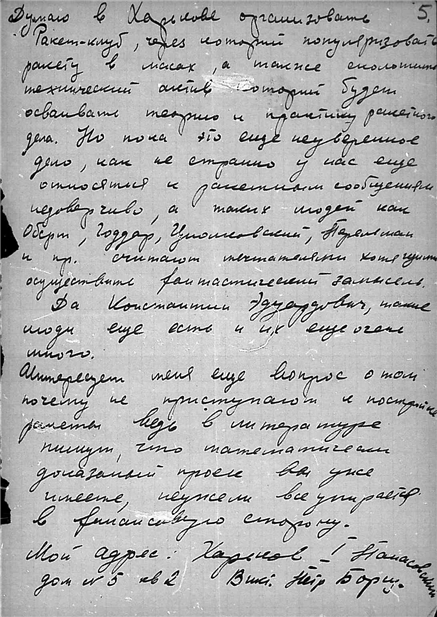 Думаю в Харькове организовать 5.
Ракет-клуб, через который популяризовать
ракету в масах, а также сколотить
технический актив который будет
осваивать теорию и практику ракетного
дела. Но пока это еще неуверенное
дело, как не странно у нас еще
относятся к ракетным сообщениям
недоверчиво, а таких людей как
Оберт, Годдар, Циолковский, Перельман
и пр. считают мечтателями
осуществить фантастический замысел.
Да Константин Эдуардович, такие
люди еще есть и их еще очень
много.
Интересует меня еще вопрос о том
почему не приступают к постройке
ракеты ведь в литературе
пишут, что математически
доказаный проек вы уже
имеете, неужели все упирается
в финансовую сторону.
Мой адрес: Харьков I
дом № 5 кв 2